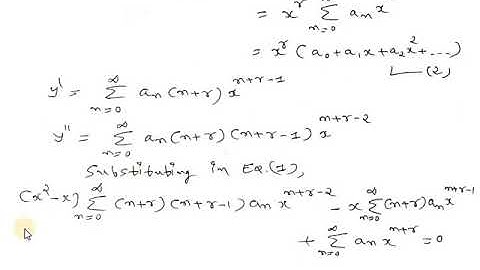 = x^r ∑_{n=0} a_n x
= x^r (a_0 + a_1 x + a_2 x^2 + ---)
(2)
y' = ∑_{n=0}^{∞} a_n (n+r) x^{n+r-1}
y'' = ∑_{n=0}^{∞} a_n (n+r) (n+r-1) x^{n+r-2}
Substituting in Eq.(1),
(x^2-x) ∑_{n=0}^{∞} (n+r) (n+r-1) a_n x^{n+r-2} - x ∑_{n=0}^{∞} (n+r) a_n x^{n+r-1}
+ ∑_{n=0}^{∞} a_n x^{n+r} = 0